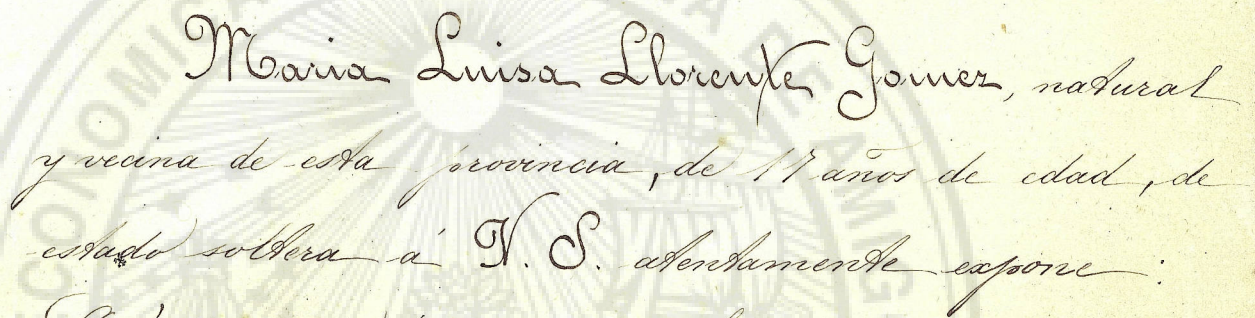 Maria Luisa Llorente Gomez, natural
y vecina de esta provincia, de 17 años de edad, de
estado soltera á V. S. atentamente expone: